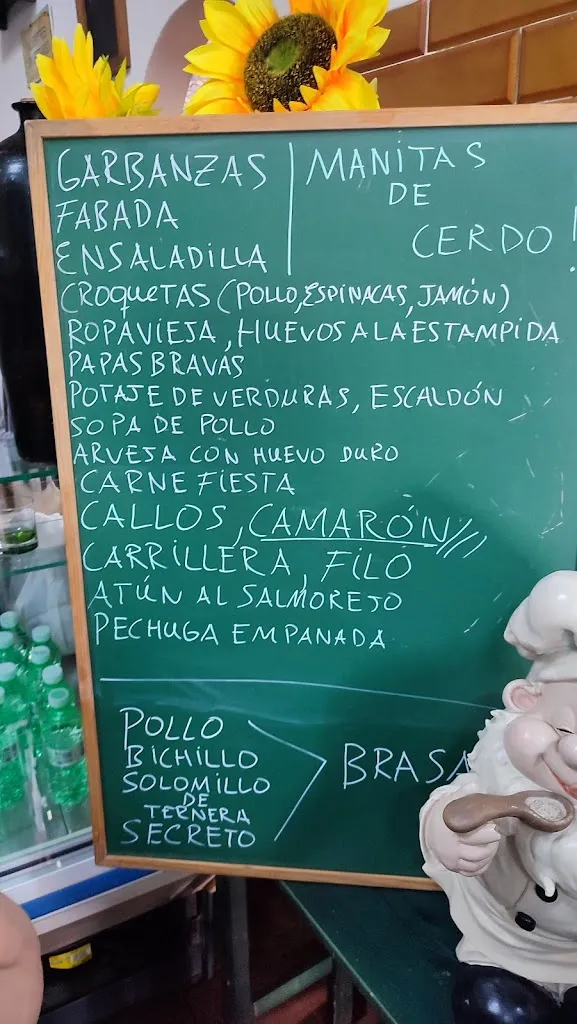 GARBANZAS
FABADA
ENSALADILLA
MANITAS
DE
CERDO!
CROQUETAS (POLLO, ESPINACAS, JAMÓN)
ROPAVIEJA, HUEVOS A LA ESTAMPIDA
PAPAS BRAVAS
POTAJE DE VERDURAS, ESCALDÓN
SOPA DE POLLO
ARVEJA CON HUEVO DURO
CARNE FIESTA
CALLOS, CAMARÓN
CARRILLERA, FILO
ATÚN AL SALMOREJO
PECHUGA EMPANADA
POLLO
BICHILLO
SOLOMILLO
DE
TERNERA
SECRETO
BRASA